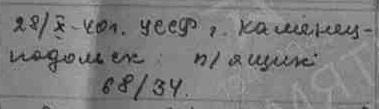 28/X-40г. УССР г. Каменец-
подольск п/ящик
68/34.